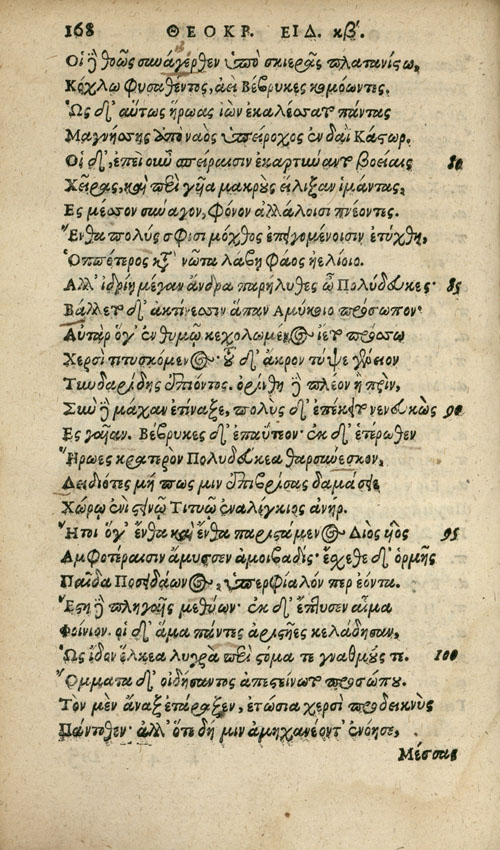 168 ΘΕΟΚΡ. ΕΙΔ. κβ΄.
Οἱ ἢ θοῶς συνάγερθεν ὑπὸ σκιερὰς πλατανίστως,
Κόχλω φυσαθέντος, ἀεὶ Βέβρυκες κομόωντες.
Ὣς δ᾽ αὔτως ἥρωας ἰὼν ἐκαλέσσατο πάντας
Μαγνήσσης ἀπὸ ναὸς ὑπείροχος ἐν δαῒ Κάστωρ.
Οἱ δ᾽, ἐπεὶ οὖν σπείραισιν ἐκαρτύναντο βοείαις 80
Χεῖρας, καὶ περὶ γυῖα μακροὺς εἵλιξαν ἱμάντας,
Ες μέσσον σύναγον, φόνον ἀλλάλοισι πνέοντες.
Ἔνθα πολύς σφισι μόχθος ἐπειγομένοισιν ἐτύχθη,
Ὁππότερος κατὰ νῶτα λάβῃ φάος ἠελίοιο.
Αλλ᾽ ἰδρίῃ μέγαν ἄνδρα παρήλυθες ὦ Πολύδευκες· 85
Βάλλετο δ᾽ ἀκτίνεσσιν ἅπαν Αμύκοιο πρόσωπον·
Αὐτὰρ ὅγ᾽ ἐν θυμῷ κεχολωμένος ἵετο πρόσσω
Χερσὶ τιτυσκόμενος· τοῦ δ᾽ ἄκρον τύψε γένειον
Τυνδαρίδης ἐπιόντος. ὀρίνθη δὲ πλέον ἢ πρὶν,
Σὺν δὲ μάχαν ἐτίναξε, πολὺς δ᾽ ἐπέκειτο νενευκὼς 90
Ες γαῖαν. Βέβρυκες δ᾽ ἐπαΰτεον· ἐκ δ᾽ ἑτέρωθεν
Ἥρωες κρατερὸν Πολυδεύκεα θαρσύνεσκον,
Δειδιότες μή πως μιν ἐπιβρίσας δαμάσειε
Χώρῳ ἐνὶ στεινῷ Τιτυῷ ἐναλίγκιος ἀνηρ.
Ἤτοι ὅγ᾽ ἔνθα καὶ ἔνθα παριστάμενος Διὸς υἱὸς 95
Αμφοτέραισιν ἄμυσσεν ἀμοιβαδίς· ἔσχεθε δ᾽ ὁρμῆς
Παῖδα Ποσειδάωνος, ὑπερφίαλόν περ ἐόντα.
Ἔστη δὲ πληγαῖς μεθύων· ἐκ δ᾽ ἔπτυσεν αἷμα
Φοίνιον. οἱ δ᾽ ἅμα πάντες ἀριστῆες κελάδησαν,
Ὡς ἴδον ἕλκεα λυγρὰ περὶ στόμα τε γναθμούς τε. 100
Ὄμματα δ᾽ οἰδήσαντος ἀπεστείνωτο προσώπου.
Τὸν μὲν ἄναξ ἐτάραξεν, ἐτώσια χερσὶ προδεικνὺς
Πάντοθεν· ἀλλ᾽ ὅτε δή μιν ἀμηχανέοντ᾽ ἐνόησε,
Μέσσας